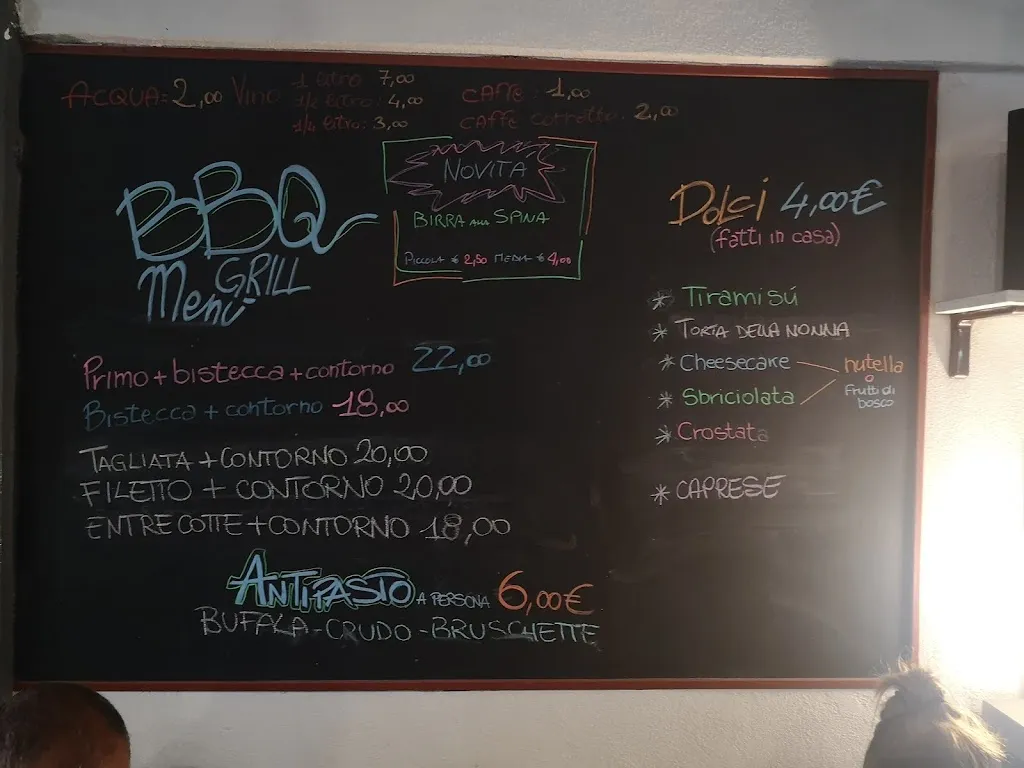 ACQUA=2,00 Vino 1 litro 7,00
1/2 litro: 4,00
1/4 litro: 3,00
CAFFE: 1,00
CAFFE corretto. 2,00
BBQ
GRILL
Menù
NOVITÀ
BIRRA ALLA SPINA
PICCOLA € 2,50 MEDIA € 4,00
Primo + bistecca + contorno 22,00
Bistecca + contorno 18,00
TAGLIATA + CONTORNO 20,00
FILETTO + CONTORNO 20,00
ENTRECOTTE + CONTORNO 18,00
ANTIPASTO A PERSONA 6,00€
BUFALA - CRUDO - BRUSCHETTE
Dolci 4,00€
(fatti in casa)
* Tiramisú
* TORTA DELLA NONNA
* Cheesecake
* Sbriciolata
nutella
o
Frutti di
bosco
* Crostata
* CAPRESE